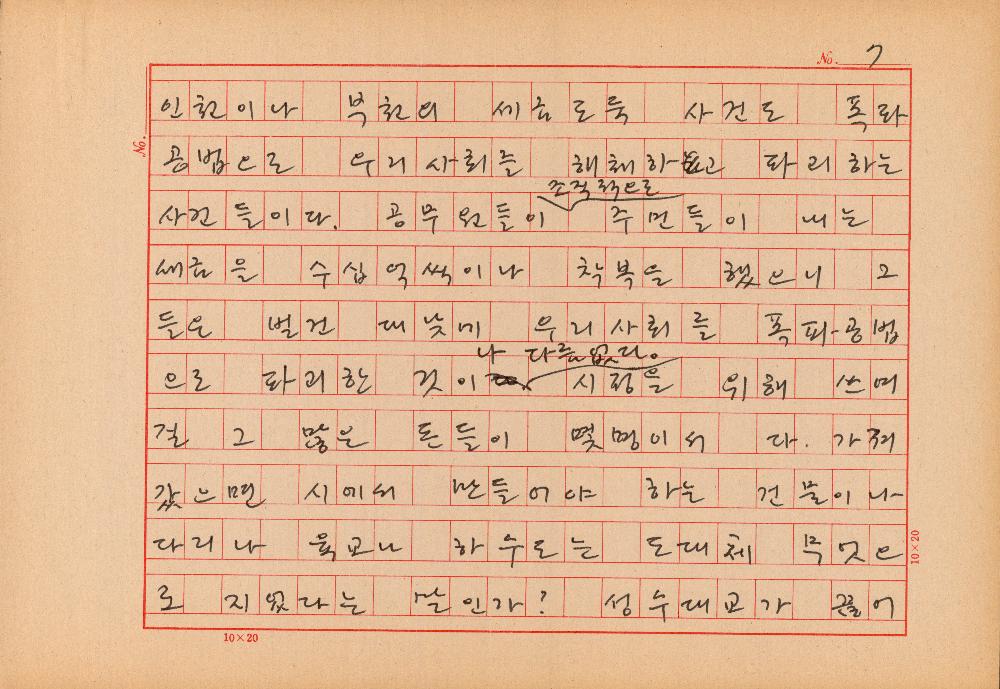 No. 7
No.
인천이나 부천의 세금도둑 사건도 폭파
공법으로 우리 사회를 해체하고 파괴하는
조직적으로
사건들이다. 공무원들이 주민들이 내는
세금을 수십억씩이나 착복을 했으니 그
들은 벌건 대낮에 우리 사회를 폭파공법
나 다름없다。
으로 파괴한 것이 시정을 위해 쓰여
질 그 많은 돈들이 몇명이서 다. 가져
갔으면 시에서 만들어야 하는 건물이나
다리나 육교나 하수도는 도대체 무엇으
로 지었다는 말인가? 성수대교가 끊어
10×20
10×20